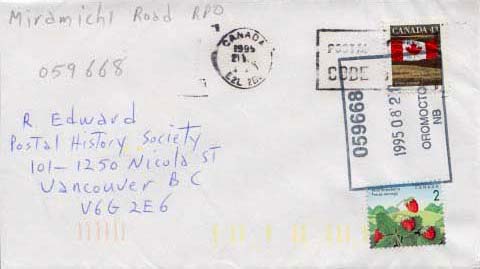 Miramichi Road RPO
059668
CANADA
1995
E2L 2B
POSTAL
CODE
CANADA 43
059668
1995 08 2
OROMOCTO
NB
R Edward
Postal History Society
101-1250 Nicola ST
Vancouver B C
V6G 2E6
CANADA
2